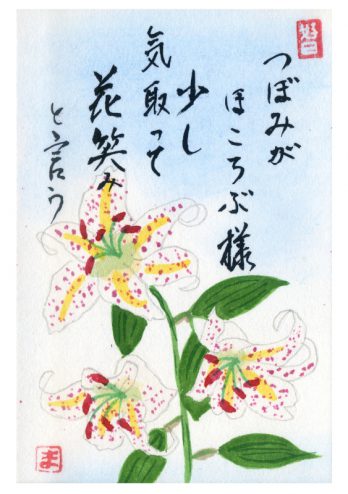 つぼみが
ほころぶ様
少し
気取って
花笑み
と言う
ま